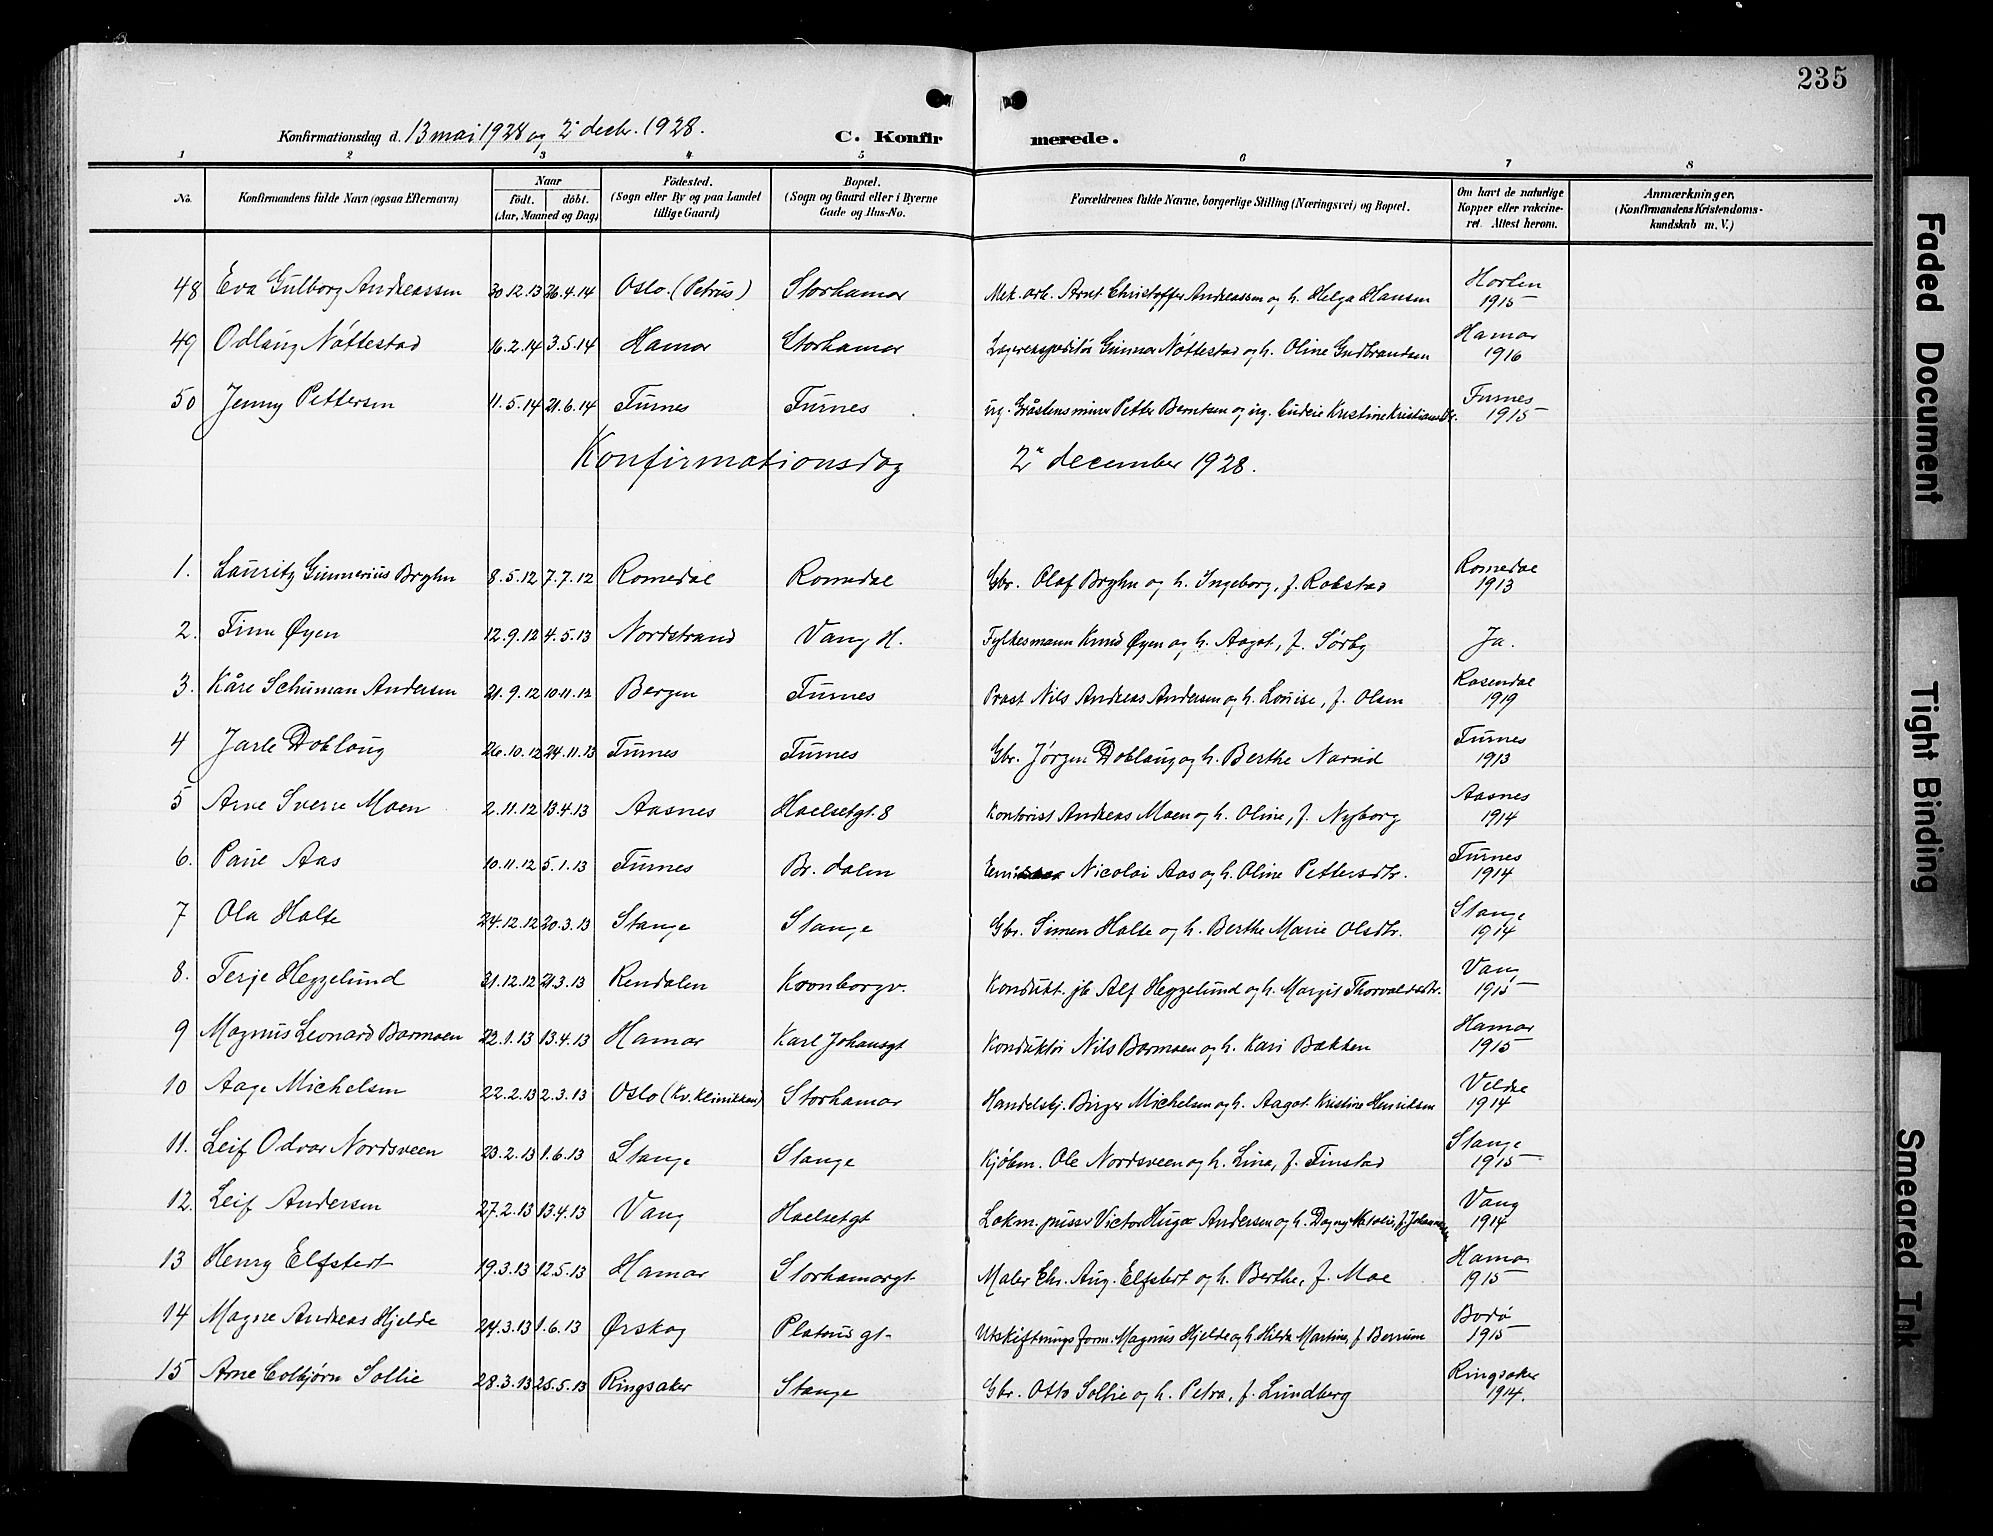 235
Konfirmationsdag d. 13 mai 1928 og 2. decbr. 1928.
C. Konfirmerede.
1 2 3 4 5 6 7 8
No. Konfirmandens fulde Navn (ogsaa Efternavn) Naar født. døbt. (Aar, Maaned og Dag) Fødested. (Sogn eller By og paa Landet tillige Gaard) Bopæl. (Sogn og Gaard eller i Byerne Gade og Hus-No. Forældrenes fulde Navne, borgerlige Stilling (Næringsvei) og Bopæl. Om havt de naturlige Kopper eller vakcineret. Attest herom. Anmærkninger, (Konfirmandens Kristendomskundskab m. V.)
48 Eva Gulborg Andreassen 30.12.13 26.4.14 Oslo (Petrus) Storhamar Mek. arb. Arnt Christoffer Andreassen og h. Helga Hansen Horten 1915
49 Odlaug Nøttestad 16.2.14 3.5.14 Hamar Storhamar Lagerekspeditør Gunnar Nøttestad og h. Oline Gudbrandsen Hamar 1916
50 Jenny Pettersen 11.5.14 21.6.14 Furnes Furnes ug. Gråstensminer Petter Berntsen og ug. Kristine Furnes 1915
Konfirmationsdag 2. december 1928.
1. Lauritz Gunnerius Bryhn 8.5.12 7.7.12 Romedal Romedal Gbr. Olaf Bryhn og h. Ingeborg, f. Rokstad Romedal 1913
2. Finn Øyen 12.9.12 4.5.13 Nordstrand Vang H. Fylkesmann Knud Øyen og h. Aagot, f. Sørby Ja.
3. Kåre Schuman Andersen 21.9.12 10.11.12 Bergen Furnes Prest Nils Andreas Andersen og h. Louise, f. Olsen Rosendal 1919
4 Jarle Doblaug 26.10.12 24.11.13 Furnes Furnes Gbr. Jørgen Doblaug og h. Berthe Narud Furnes 1913
5 Arne Sverre Moen 2.11.12 13.4.13 Aasnes Hoelsetgt. 8 Kontorist Andreas Moen og h. Oline, f. Nyborg Aasnes 1914
6. Paul Aas 10.11.12 5.1.13 Furnes Br. dalen Nicolai Aas og h. Oline Pettersdtr. Furnes 1914
7 Ola Halte 24.12.12 20.3.13 Stange Stange Gbr. Simen Halte og h. Berthe Marie Olsdtr. Stange 1914
8. Terje Heggelund 31.12.12 21.3.13 Rendalen Kronborgv. Kondukt. jb Alf Heggelund og h. Margit Thorvaldsdtr. Vang 1915
9 Magnus Leonard Barmoen 22.1.13 13.4.13 Hamar Karl Johansgt Konduktør Nils Barmoen og h. Kari Bakken Hamar 1915
10 Aage Michelsen 22.2.13 2.3.13 Oslo (Kv. klinikken) Storhamar Handelsbj. Birger Michelsen og h. Aagot Kristine Henriksen Veldre 1914
11. Leif Odvar Nordsveen 23.2.13 1.6.13 Stange Stange Kjøbm. Ole Nordsveen og h. Lina, f. Finstad Stange 1915
12. Leif Andersen 27.2.13 13.4.13 Vang Hoelsetgt Lokm. pusser Victor Hugo Andersen og h. Dagny f. Johannesen Vang 1914
13 Henry Elfstedt 19.3.13 12.5.13 Hamar Storhamargt Maler Chr. Aug. Elfstedt og h. Berthe, f. Moe Hamar 1915
14 Magne Andreas Hjelde 24.3.13 1.6.13 Ørskog Platous gt. Utskiftningsform. Magnus Hjelde og h. Hilda Martine, f. Berrum Bodø 1915
15 Arne Colbjørn Sollie 28.3.13 25.5.13 Ringsaker Stange Gbr. Otto Sollie og h. Petra, f. Lundberg Ringsaker 1914.
Faded Document
Tight Binding
Smeared Ink